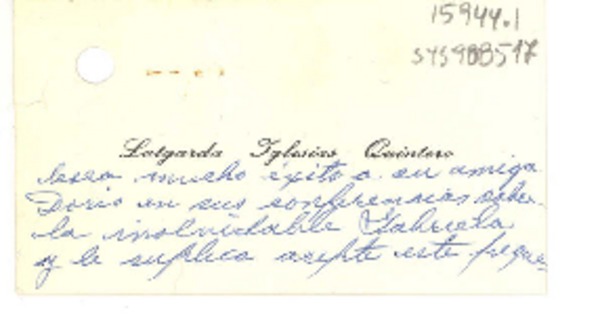 15944.1
sys988517
Lutgarda Iglesias Quintero
desea mucho éxito a su amiga
Doris en sus conferencias sobre
la inolvidable Gabriela
y le suplica acepte este peque